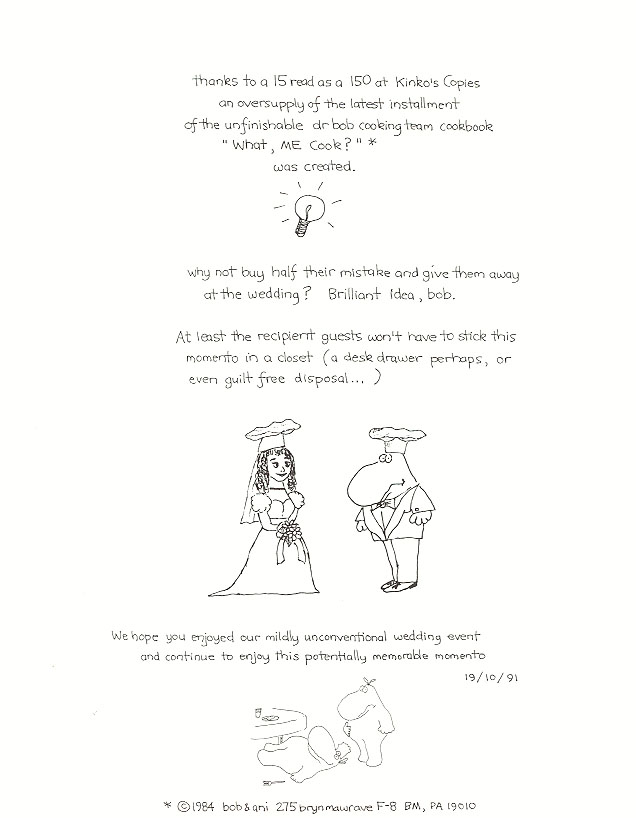 thanks to a 15 read as a 150 at Kinko's Copies
an oversupply of the latest installment
of the unfinishable dr bob cooking team cookbook
"What, ME Cook?" *
was created.
why not buy half their mistake and give them away
at the wedding? Brilliant idea, bob.
At least the recipient guests won't have to stick this
momento in a closet (a desk drawer perhaps, or
even guilt free disposal... )
We hope you enjoyed our mildly unconventional wedding event
and continue to enjoy this potentially memorable momento
19/10/91
* ©1984 bob & ani 275 brynmawrave F-8 BM, PA 19010